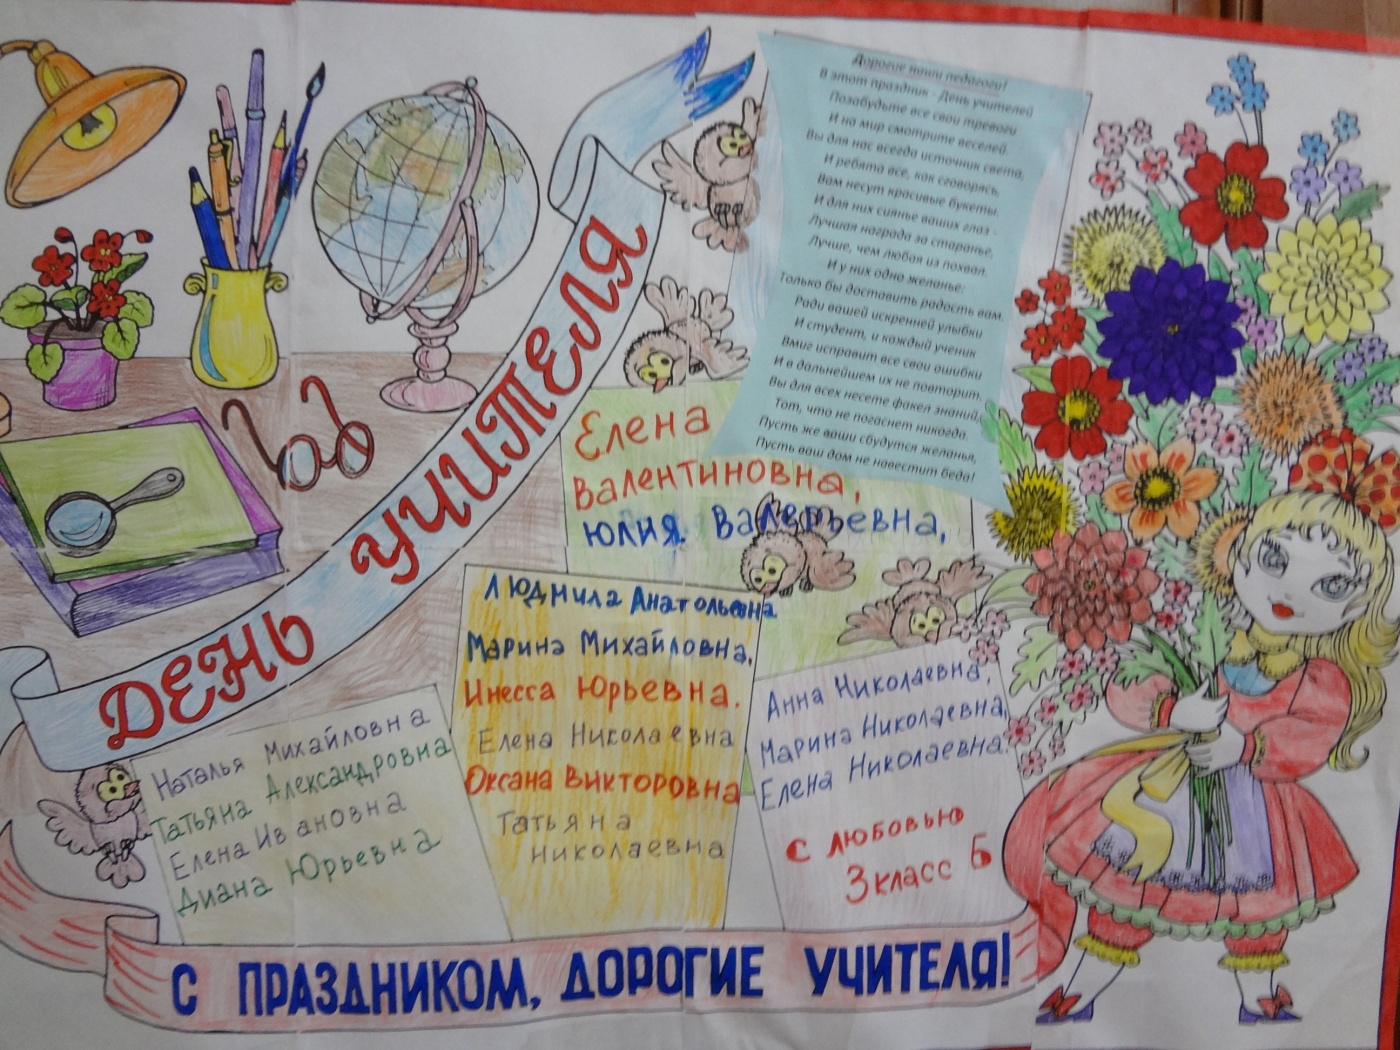 ДЕНЬ УЧИТЕЛЯ
Дорогие наши педагоги!
В этот праздник - День учителей
Позабудьте все свои тревоги
И на мир смотрите веселей.
Вы для нас всегда источник света,
И ребята все, как сговорясь,
Вам несут красивые букеты.
И для них сиянье ваших глаз -
Лучшая награда за старанье,
Лучше, чем любая из похвал.
И у них одно желанье:
Только бы доставить радость вам.
Ради вашей искренней улыбки
И студент, и каждый ученик
Вмиг исправит все свои ошибки
И в дальнейшем их не повторит.
Вы для всех несете факел знаний,
Тот, что не погаснет никогда.
Пусть же ваши сбудутся желанья,
Пусть ваш дом не навестит беда!
Елена
Валентиновна,
Юлия Валерьевна,
Людмила Анатольевна
Марина Михайловна,
Инесса Юрьевна.
Елена Николаевна
Оксана Викторовна
Татьяна
Николаевна
Наталья Михайловна
Татьяна Александровна
Елена Ивановна
Диана Юрьевна
Анна Николаевна,
Марина Николаевна,
Елена Николаевна.
С любовью
3 класс Б
С ПРАЗДНИКОМ, ДОРОГИЕ УЧИТЕЛЯ!